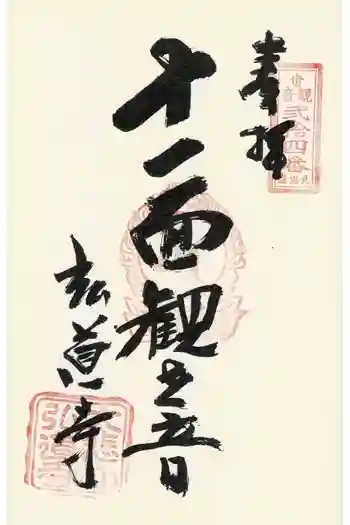 奉拝
弐拾四番
十一面観世音
弘道寺